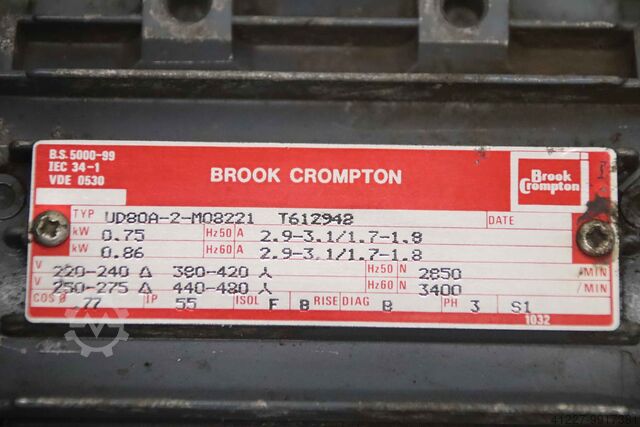 B.S. 5000-99
IEC 34-1
VDE 0530
BROOK CROMPTON
Brook
Crompton
TYP UD80A-2-M08221 T612942 DATE
kW 0.75 Hz50 A 2.9-3.1/1.7-1.8
kW 0.86 Hz60 A 2.9-3.1/1.7-1.8
V 220-240 Δ 380-420 ⅄ Hz50 N 2850 /MIN
V 250-275 Δ 440-480 ⅄ Hz60 N 3400 /MIN
COS Ø .77 IP 55 ISOL F B RISE DIAG B PH 3 S1
1032